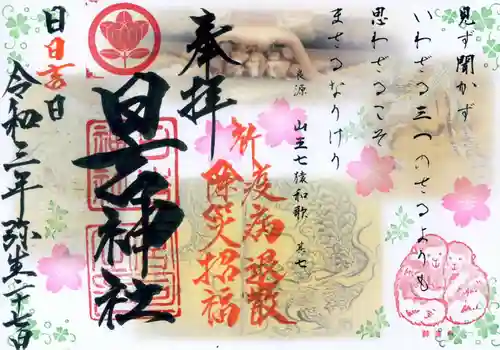 見ず聞かず
いわざる三つのさるよりも
思わざるこそ
まさるなりけり
良源 山王七猿和歌 其七
奉拝
祈疫病退散
除災招福
日吉神社
日日吉日
令和三年弥生二十七日